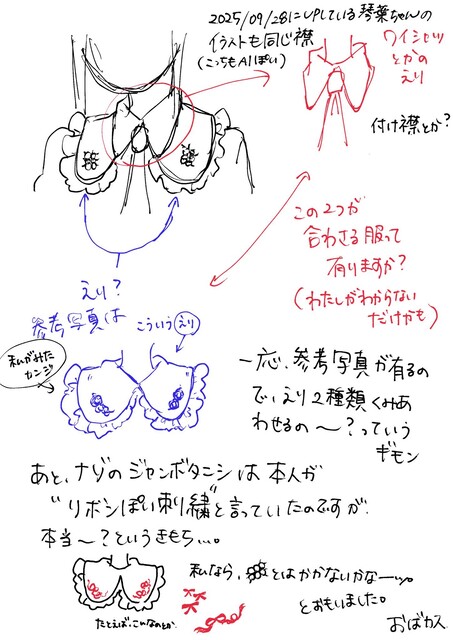 2025/09/28にUPしている琴葉ちゃんの
イラストも同じ襟
(こっちもAIぽい)
ワイシャツ
とかの
えり
付け襟とか?
この2つが
合わさる服って
有りますか?
(わたしがわからない
だけかも)
えり?
参考写真は
こういうえり
私がみた
カンジ
一応、参考写真が有るの
で、えり2種類くみあ
わせるの〜?っていう
ギモン
あと、ナゾのジャンボタニシは本人が
"リボンぽい刺繍"と言っていたのですが、
本当〜?というきもち…。
私なら、とはかかないかなーッ。
とおもいました。
たとえばこんなのとか
おばカス